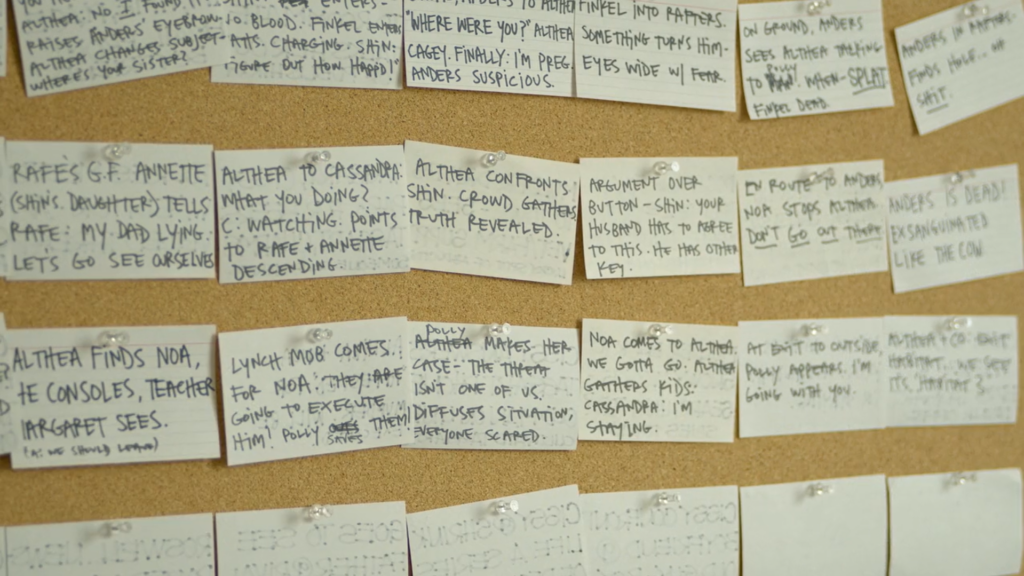 ALTHEA: NO. I FOUND IT
RAISES ANDERS' EYEBROW.
ALTHEA CHANGES SUBJECT-
WHERE'S YOUR SISTER?
TO BLOOD. FINKEL ENTERS
CHARGING. SHIN:
"FIGURE OUT HOW HAPP'D!"
TO ALTHEA
"WHERE WERE YOU?" ALTHEA
CAGEY. FINALLY: I'M PREG.
ANDERS SUSPICIOUS.
FINKEL INTO RAFTERS.
SOMETHING TURNS HIM-
EYES WIDE W/ FEAR.
ON GROUND, ANDERS
SEES ALTHEA TALKING
TO POLLY WHEN-SPLAT
FINKEL DEAD.
ANDERS IN RAFTERS.
FINDS HALF... OH
SHIT.
RAFE'S G.F. ANNETTE
(SHIN'S DAUGHTER) TELLS
RAFE: MY DAD LYING.
LET'S GO SEE OURSELVES
ALTHEA TO CASSANDRA:
WHAT YOU DOING?
C: WATCHING. POINTS
TO RAFE + ANNETTE
DESCENDING.
ALTHEA CONFRONTS
SHIN. CROWD GATHERS
TRUTH REVEALED.
ARGUMENT OVER
BUTTON-SHIN: YOUR
HUSBAND HAS TO AGREE
TO THIS. HE HAS OTHER
KEY.
EN ROUTE TO ANDERS
NOA STOPS ALTHEA.
DON'T GO OUT THERE
ANDERS IS DEAD!
EXSANGUINATED
LIKE THE COW.
ALTHEA FINDS NOA,
HE CONSOLES, TEACHER
MARGARET SEES.
(A: WE SHOULD LEAVE)
LYNCH MOB COMES
FOR NOA: THEY ARE
GOING TO EXECUTE
HIM! POLLY SAVES THEM!
POLLY
ALTHEA MAKES HER
CASE- THE THREAT
ISN'T ONE OF US.
DIFFUSES SITUATION,
EVERYONE SCARED.
NOA COMES TO ALTHEA.
WE GOTTA GO. ALTHEA
GATHERS KIDS.
CASSANDRA: I'M
STAYING.
AT EXIT TO OUTSIDE,
POLLY APPEARS. I'M
GOING WITH YOU.
ALTHEA + CO. EXIT
HABITAT... WE SEE
ITS HABITAT 3